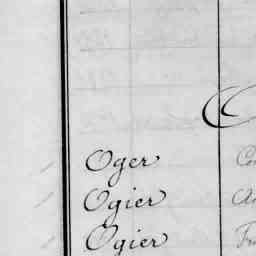 O
Oger Co
Ogier
Ogier